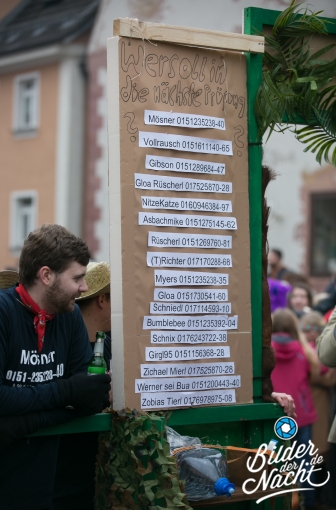 Wer soll in
die nächste Prüfung
? ?
Mösner 0151235238-40
Vollrausch 0151611140-65
Gibson 0151289684-47
Gloa Rüscherl 017525870-28
NitzeKatze 0160946384-97
Asbachmike 0151275145-62
Rüscherl 0151269760-81
(T)Richter 017170288-68
Myers 0151235238-35
Gloa 0151730541-60
Schniedl 0171114593-10
Bumblebee 0151235392-04
Schnix 0176243722-38
Girgl95 0151156368-28
Zichael Mierl 017525870-28
Werner sei Bua 0151200443-40
Zobias Tierl 0176978975-08
Mösner
0151-235238-40
Bilder
der.de
Nacht